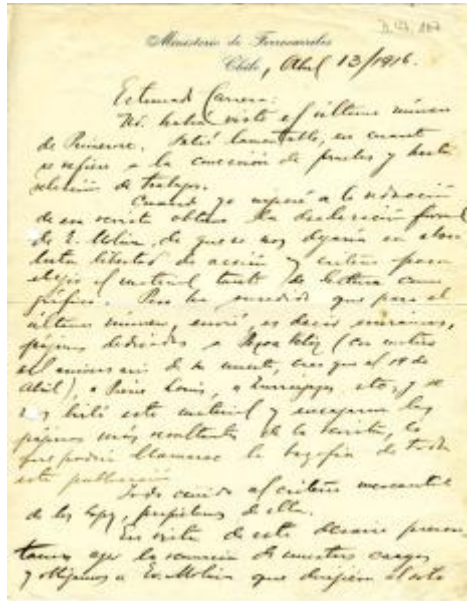 Ministerio de Ferrocarriles
Chile, Abril 13/1916.
Estimado Carrera:
Ud. habrá visto el último número
de Primerose. Salió lamentable, en cuanto
se refiere a la corrección de pruebas y hasta
selección de trabajos.
Cuando yo ingresé a la redacción
de esa revista obtuve la declaración formal
de E. Molina, de que se nos dejaría en abso-
luta libertad de acción y criterio para
elegir el material tanto de lectura como
gráfico. Pero ha sucedido que para el
último número, envié, es decir enviamos,
páginas dedicadas a Pezoa Veliz (con motivo
del aniversario de su muerte, creo que el 19 de
Abril), a Pierre Louis, a etc, y se
nos botó este material y encajaron las
páginas más de la revista, lo
que podría llamarse la bazofia de toda
esta publicación.
Todo al criterio mercantil
de los propietarios de ella.
En vista de este desaire presen-
tamos ayer la renuncia de nuestros cargos
y obligamos a Ev. Molina que